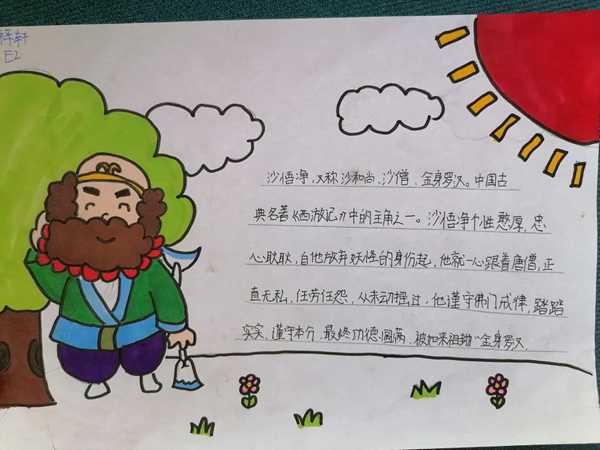 轩
E2
沙悟净,又称沙和尚、沙僧、金身罗汉。中国古
典名著《西游记》中的主角之一。沙悟净个性憨厚、忠
心耿耿,自他放弃妖怪的身份起,他就一心跟着唐僧,正
直无私,任劳任怨,从未动摇过,他谨守佛门戒律,踏踏
实实、谨守本分,最终功德圆满,被如来祖“金身罗汉